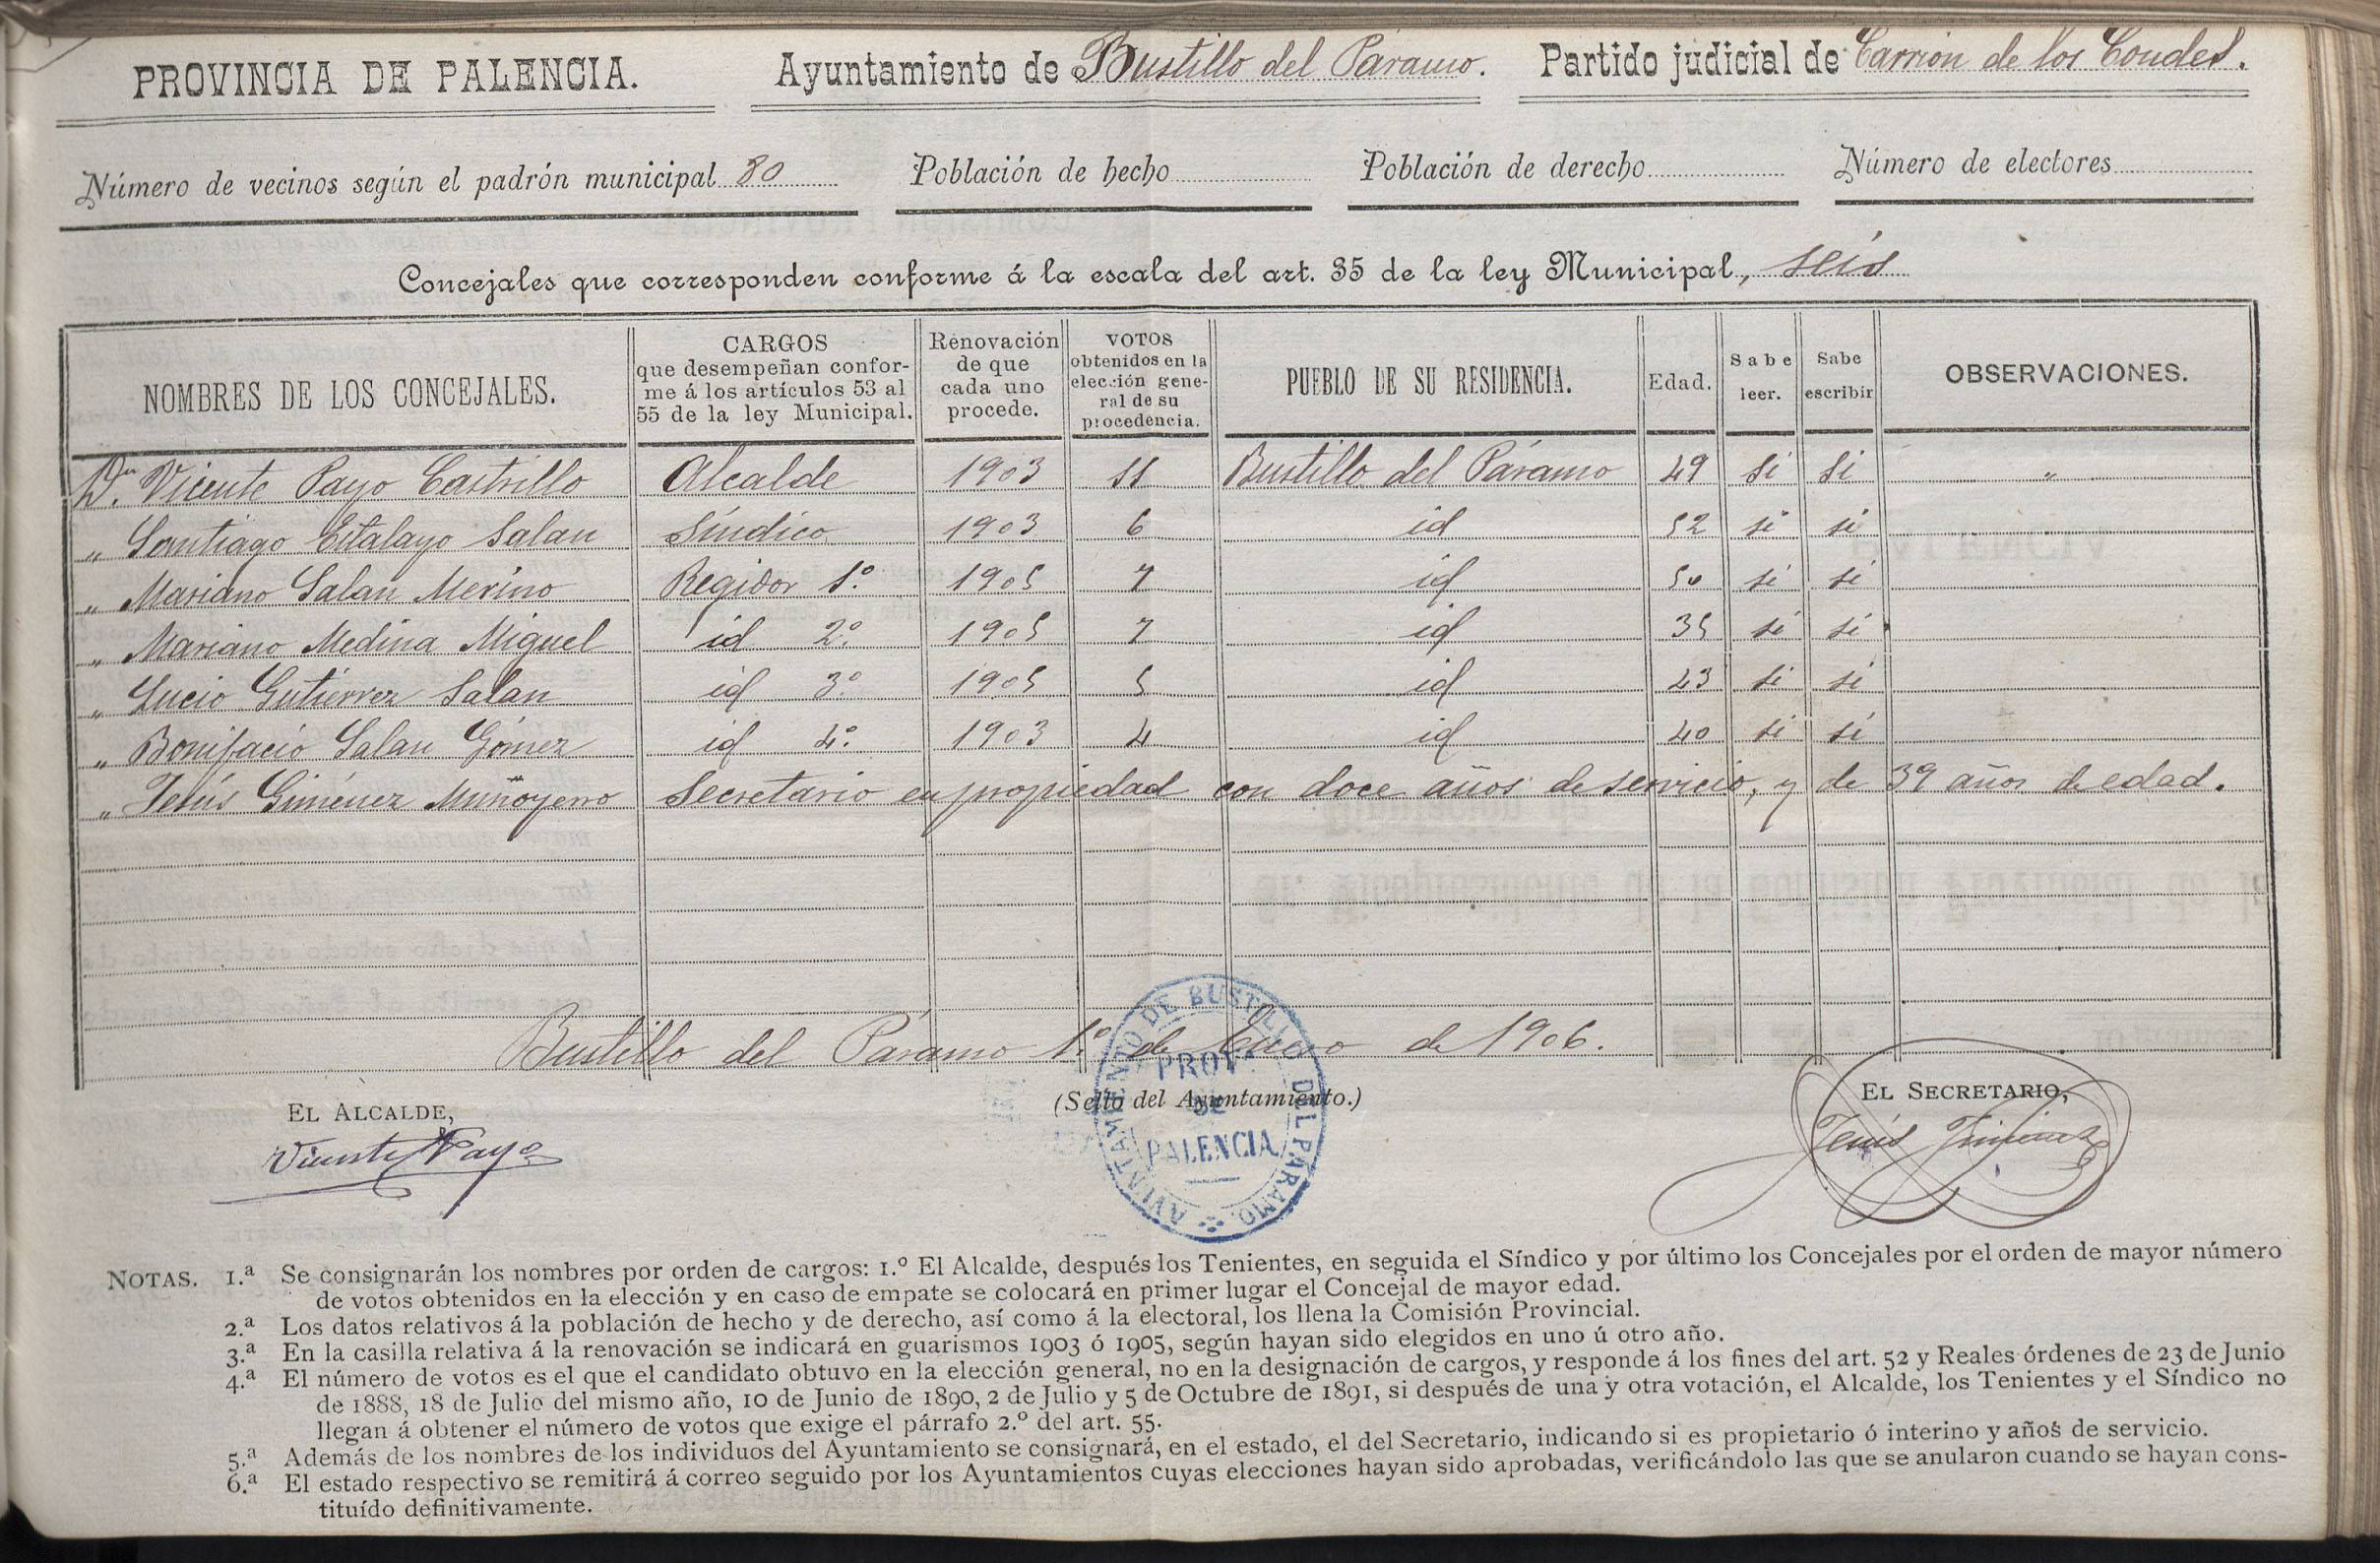 PROVINCIA DE PALENCIA. Ayuntamiento de Bustillo del Páramo. Partido judicial de Carrión de los Condes.
Número de vecinos según el padrón municipal 80 Población de hecho Población de derecho Número de electores
Concejales que corresponden conforme á la escala del art. 35 de la ley Municipal, seis
NOMBRES DE LOS CONCEJALES. CARGOS que desempeñan confor- me á los artículos 53 al 55 de la ley Municipal. Renovación de que cada uno procede. VOTOS obtenidos en la elección gene- ral de su procedencia. PUEBLO DE SU RESIDENCIA. Edad. Sabe leer. Sabe escribir OBSERVACIONES.
Dn. Vicente Payo Castrillo Alcalde 1903 11 Bustillo del Páramo 49 si si "
" Santiago Estalayo Salan Síndico 1903 6 id 52 si si
" Mariano Salan Merino Regidor 1º. 1905 7 id 50 si si
" Mariano Medina Miguel id 2º. 1905 7 id 35 si si
" Lucio Gutierrez Salan id 3º. 1905 5 id 43 si si
" Bonifacio Salan Gómez id 4º. 1903 4 id 40 si si
" Jesús Giménez Muñoyerro Secretario en propiedad con doce años de servicio, y de 39 años de edad.
Bustillo del Páramo 1º. de Enero de 1906.
EL ALCALDE, (Sello del Ayuntamiento.) EL SECRETARIO,
Vicente Payo Jesús Jimenez
AYUNTAMIENTO DE BUSTILLO DEL PÁRAMO.
PROV.ª
DE
PALENCIA
NOTAS. 1.ª Se consignarán los nombres por orden de cargos: 1.º El Alcalde, después los Tenientes, en seguida el Síndico y por último los Concejales por el orden de mayor número
de votos obtenidos en la elección y en caso de empate se colocará en primer lugar el Concejal de mayor edad.
2.ª Los datos relativos á la población de hecho y de derecho, así como á la electoral, los llena la Comisión Provincial.
3.ª En la casilla relativa á la renovación se indicará en guarismos 1903 ó 1905, según hayan sido elegidos en uno ú otro año.
4.ª El número de votos es el que el candidato obtuvo en la elección general, no en la designación de cargos, y responde á los fines del art. 52 y Reales órdenes de 23 de Junio
de 1888, 18 de Julio del mismo año, 10 de Junio de 1890, 2 de Julio y 5 de Octubre de 1891, si después de una y otra votación, el Alcalde, los Tenientes y el Síndico no
llegan á obtener el número de votos que exige el párrafo 2.º del art. 55.
5.ª Además de los nombres de los individuos del Ayuntamiento se consignará, en el estado, el del Secretario, indicando si es propietario ó interino y años de servicio.
6.ª El estado respectivo se remitirá á correo seguido por los Ayuntamientos cuyas elecciones hayan sido aprobadas, verificándolo las que se anularon cuando se hayan cons-
tituído definitivamente.